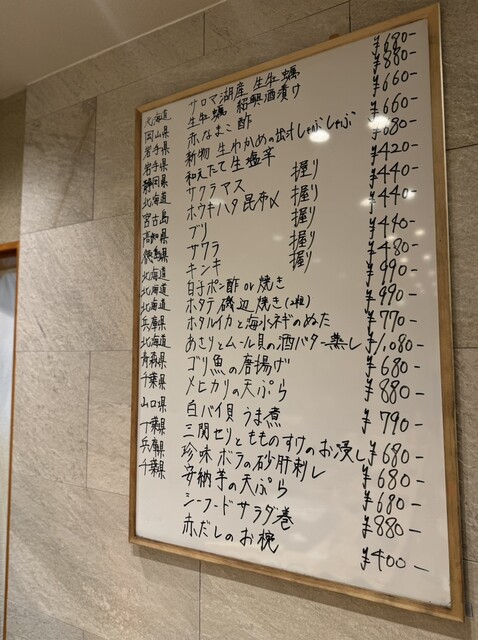 北海道 サロマ湖産 生牡蠣 ¥680-
岡山県 生牡蠣 紹興酒漬け ¥880-
岩手県 赤なまこ酢 ¥660-
岩手県 新物 生わかめの出汁しゃぶしゃぶ ¥660-
静岡県 和えたて生塩辛 ¥680-
北海道 サクラマス 握り ¥420-
宮古島 ホウキハタ昆布〆 握り ¥440-
高知県 ブリ 握り ¥440-
徳島県 サワラ 握り ¥440-
北海道 キンキ 握り ¥480-
北海道 白子ポン酢 or 焼き ¥990-
北海道 ホタテ磯辺焼き(2ヶ) ¥990-
兵庫県 ホタルイカと海水ネギのぬた ¥770-
北海道 あさりとムール貝の酒バター蒸し ¥1,080-
青森県 ゴリ魚の唐揚げ ¥680-
千葉県 メヒカリの天ぷら ¥880-
山口県 白バイ貝うま煮 ¥790-
千葉県 三関セリともものすけのお浸し ¥680-
兵庫県 珍味 ボラの砂肝刺し ¥680-
千葉県 安納芋の天ぷら ¥680-
シーフードサラダ巻 ¥880-
赤だしのお椀 ¥400-